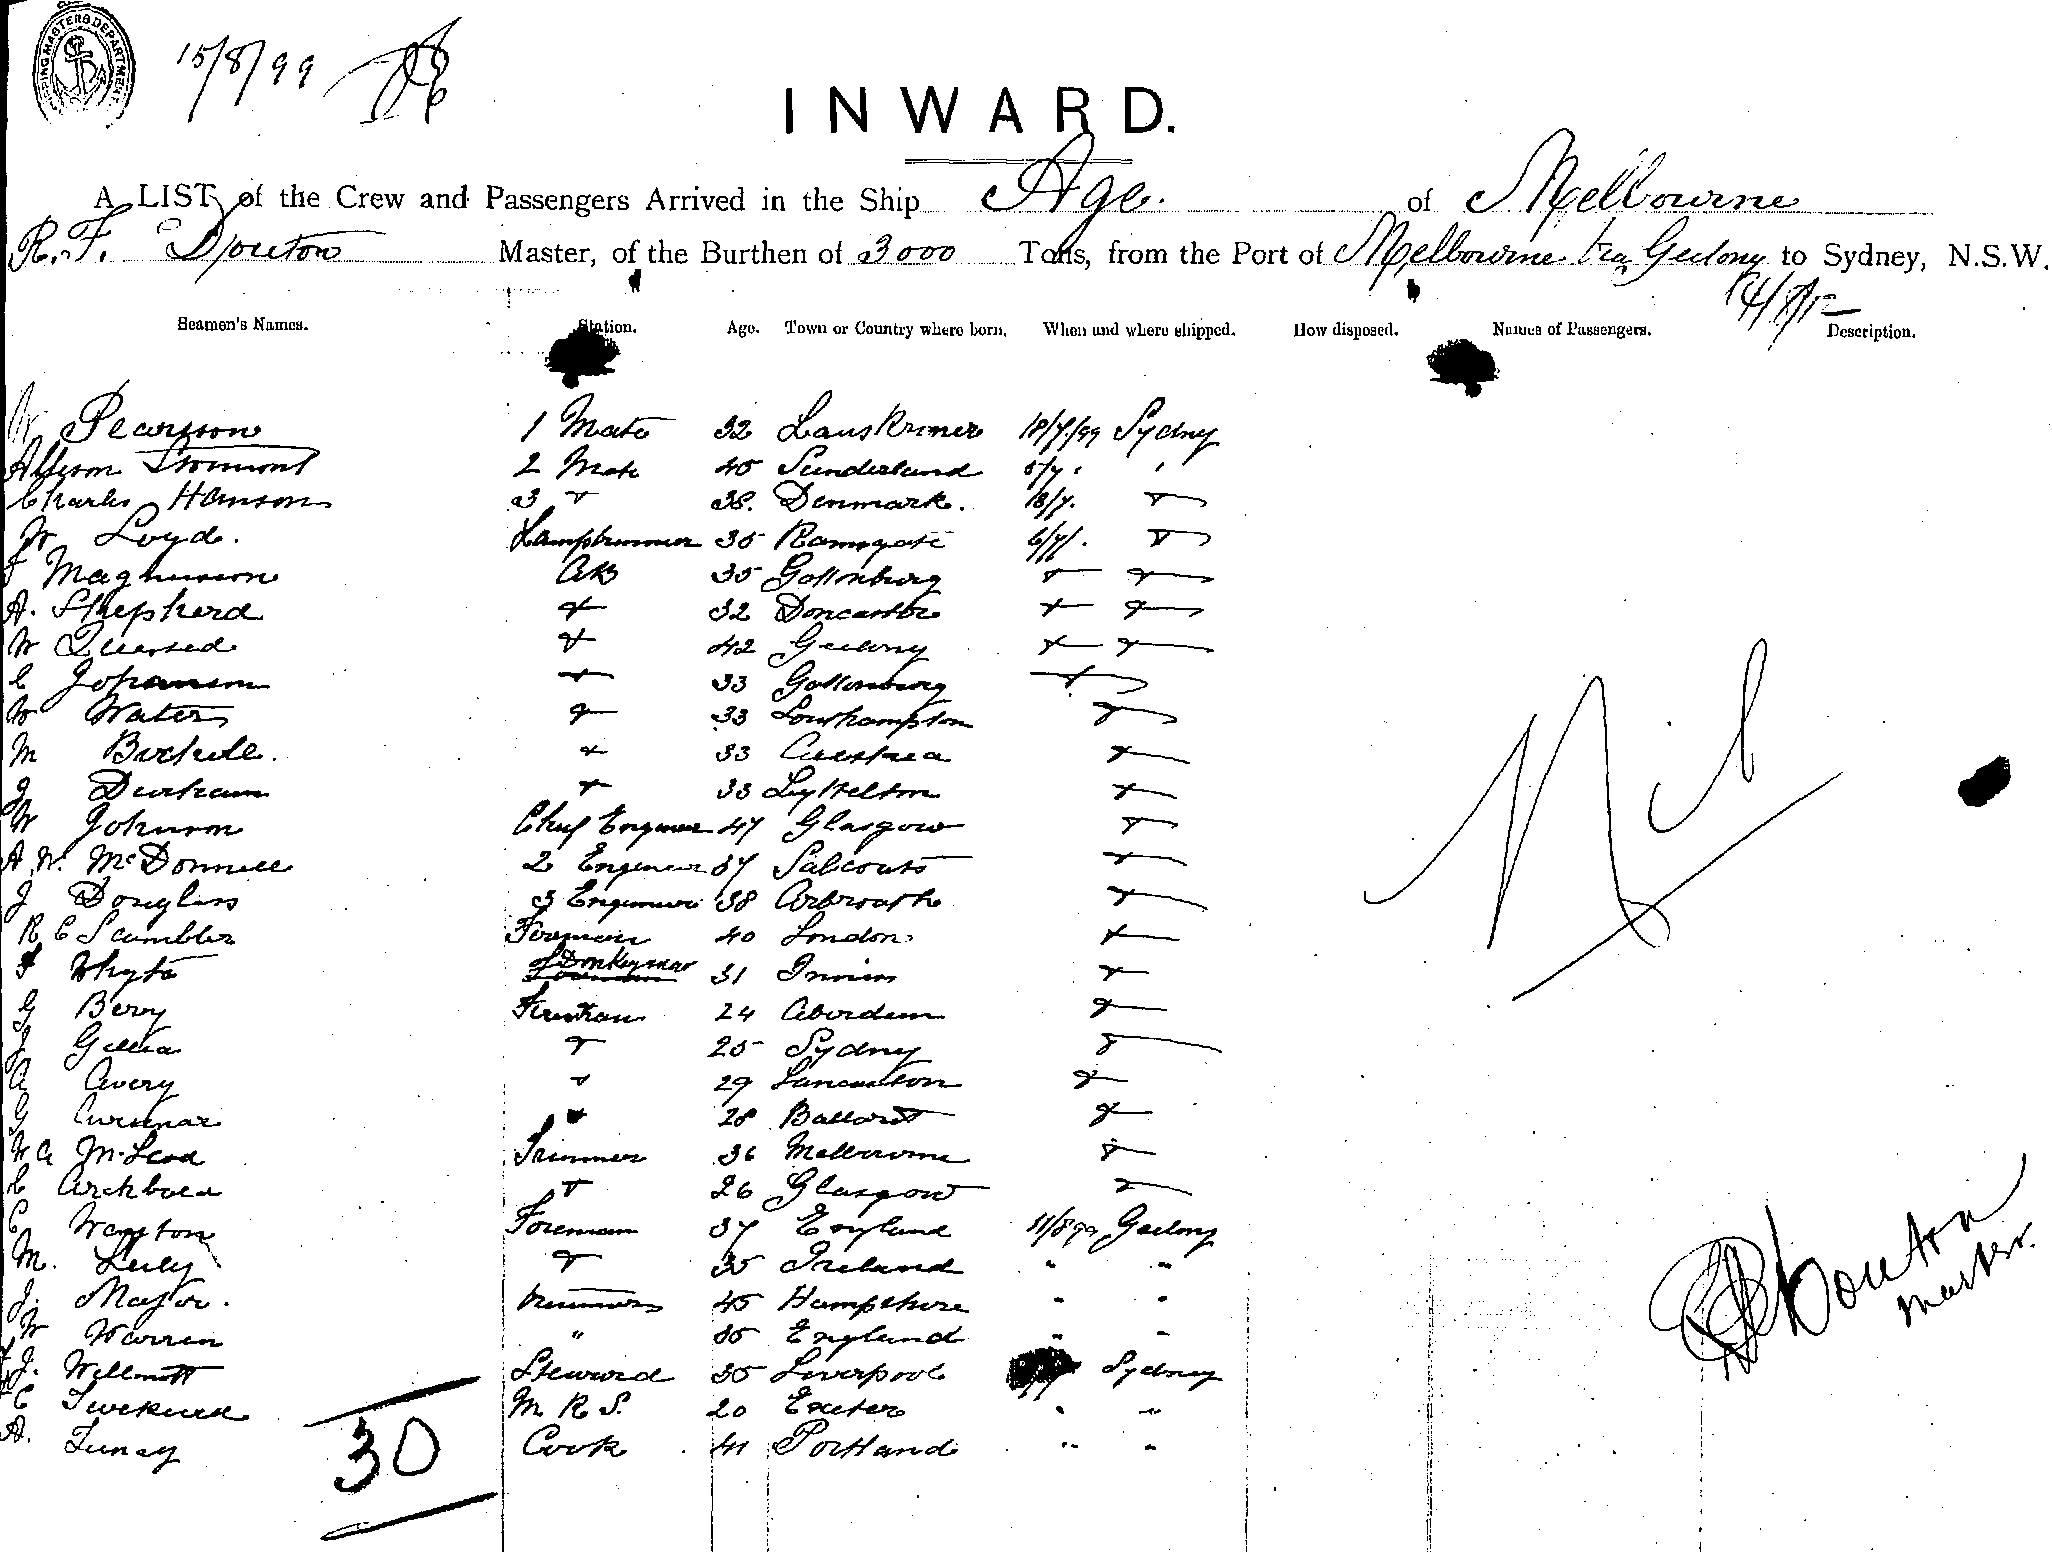 SHIPPING MASTERS DEPARTMENT
15/8/99
INWARD.
A LIST of the Crew and Passengers Arrived in the Ship Age. of Melbourne
R. F. Douton Master, of the Burthen of 3000 Tons, from the Port of Melbourne via Geelong to Sydney, N.S.W.
Seamen's Names. Station. Age. Town or Country where born. When and where shipped. How disposed. Names of Passengers. Description.
W Pearsson 1 Mate 32 18/7/99 Sydney
Allison Stormont 2 Mate 40 Sunderland 5/7 "
Charles Hanson 3 " 38. Denmark. 18/7. "
W Loyd. Lamptrimmer 35 Ramsgate 6/7/. "
F Magnusson AB 35 Gottenburg " "
A. Shepherd " 32 Doncaster " "
W " 42 Geelong " "
C Johansen " 33 Gottenburg "
W Waters " 33 Southampton "
M " 33 "
J Durham " 33 Lyttelton "
W Johnson Chief Engineer 47 Glasgow "
A. W. McDonnell 2 Engineer 37 Saltcoats "
J Douglas 3 Engineer 38 Arbroath "
R C Scambler Foreman 40 London "
F Whyte Donkeyman 31 "
G Berry Fireman 24 Aberdeen "
J " 25 Sydney "
A Avery " 29 Launceston "
G " 28 Ballarat "
W A McLeod Trimmer 36 Melbourne "
C Archbold " 26 Glasgow "
C Warton Foreman 37 England 11/8 99 Geelong
M. " 35 Ireland " "
J. Major. Trimmers 45 Hampshire " "
W Warren " 35 England " "
J. Willmott Steward 35 Liverpool Sydney
C M R S. 20 Exeter " "
A. Cook 41 Portland " "
30
Nil
R F Douton
Master.